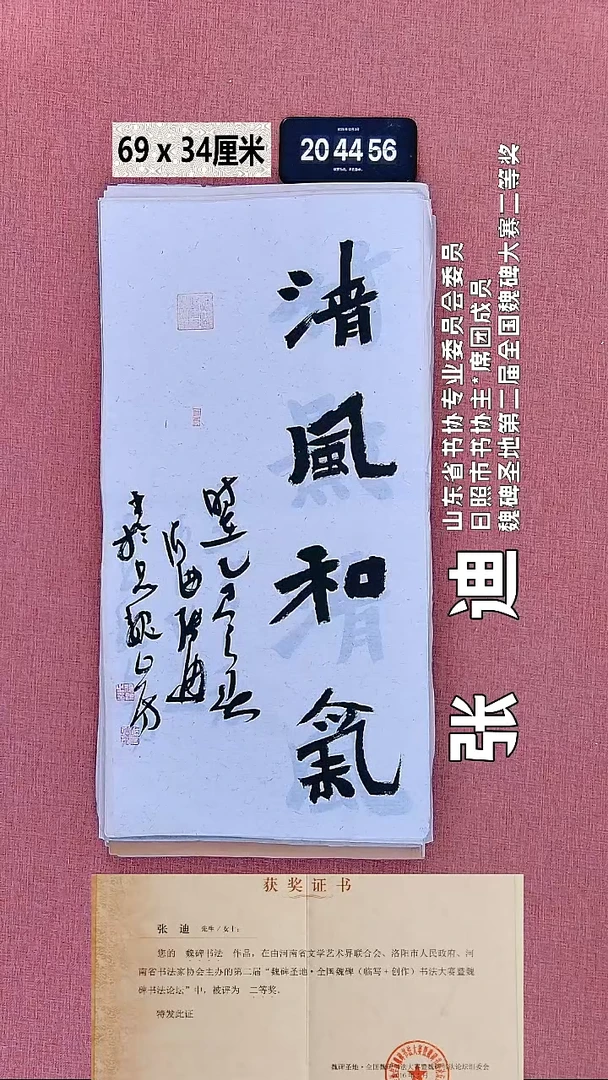 69 x 34厘米
20 44 56
清風和氣
時在乙巳之春
海曲張迪
書於尚魏山房
山东省书协专业委员会委员
日照市书协主*席团成员
魏碑圣地第二届全国魏碑大赛二等奖
张迪
获奖证书
张 迪 先生/女士:
您的 魏碑书法 作品，在由河南省文学艺术界联合会、洛阳市人民政府、河
南省书法家协会主办的第二届“魏碑圣地·全国魏碑（临写+创作）书法大赛暨魏
碑书法论坛”中，被评为 二等奖。
特发此证